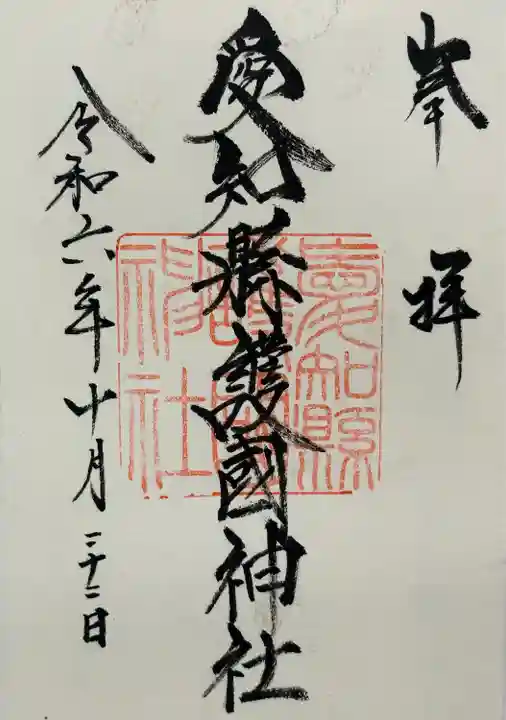 奉拝
愛知縣護國神社
愛知縣護國神社
令和六年十月二十二日